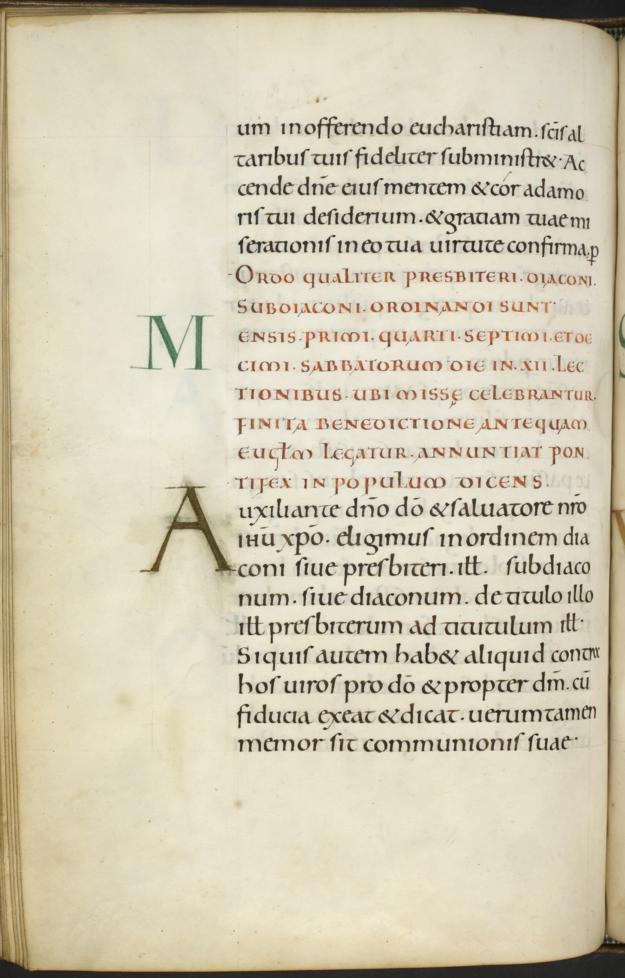 um inofferendo eucharistiam. sc̄is al
taribus tuis fideliter subministr&. Ac
cende dn̄e eius mentem &cor adamo
ris tui desiderium. &gratiam tuae mi
serationis in eo tua uirtute confirma. p̲
ORDO QUALITER PRESBITERI. DIACONI.
SUBDIACONI. ORDINANDI SUNT.
M ENSIS. PRIMI. QUARTI. SEPTIMI. ET DE
CIMI. SABBATORUM DIE IN. XII. LEC
TIONIBUS. UBI MISSĘ CELEBRANTUR.
FINITA BENEDICTIONE ANTEQUAM
EUGLM̄ LEGATUR. ANNUNTIAT PON
TIFEX IN POPULUM DICENS.
A uxiliante dn̄o dō &saluatore nr̄o
ihū xp̄o. eligimus in ordinem dia
coni siue presbiteri. ill̄. subdiaco
num. siue diaconum. de titulo illo
ill̄ presbiterum ad titutulum ill̄.
Siquis autem hab& aliquid contra
hos uiros pro dō &propter dm̄. cū
fiducia exeat &dicat. uerumtamen
memor sit communionis suae.